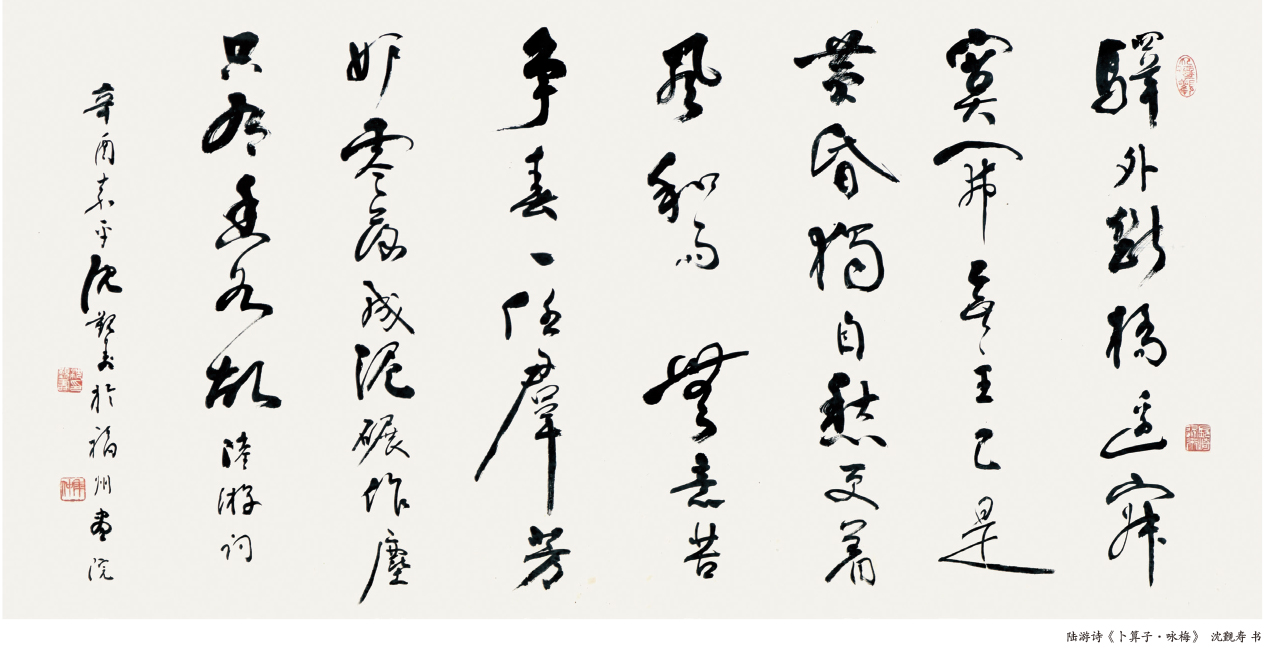 驛外斷橋邊寂
寞開無主已是
黃昏獨自愁更着
風和雨 無意苦
爭春一任羣芳
妒零落成泥碾作塵
只有香如故 陸游詞
辛酉嘉平沈覲壽於福州畫院
陆游诗《卜算子·咏梅》 沈觐寿 书